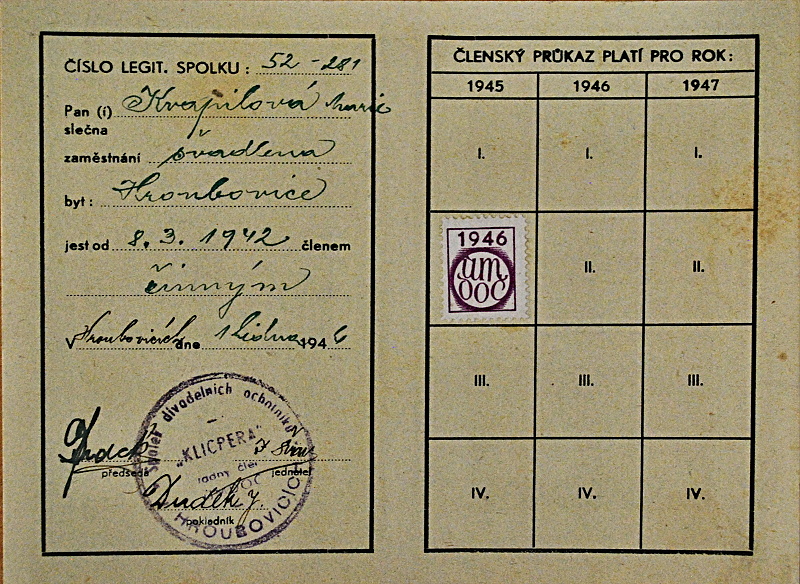 ČÍSLO LEGIT. SPOLKU: 52-281
Pan (í) Kvapilová Marie
slečna
zaměstnání švadlena
byt: Hroubovice
jest od 8. 3. 1942 členem
činným
V Hroubovicích dne 1 ledna 1946
předseda
jednatel
Dudek J.
pokladník
Spolek divadelních ochotníků
"KLICPERA"
řádný člen
HROUBOVICÍCH
ČLENSKÝ PRŮKAZ PLATÍ PRO ROK:
1945 1946 1947
I. I. I.
1946
ÚM
DOČ
II. II.
III. III. III.
IV. IV. IV.